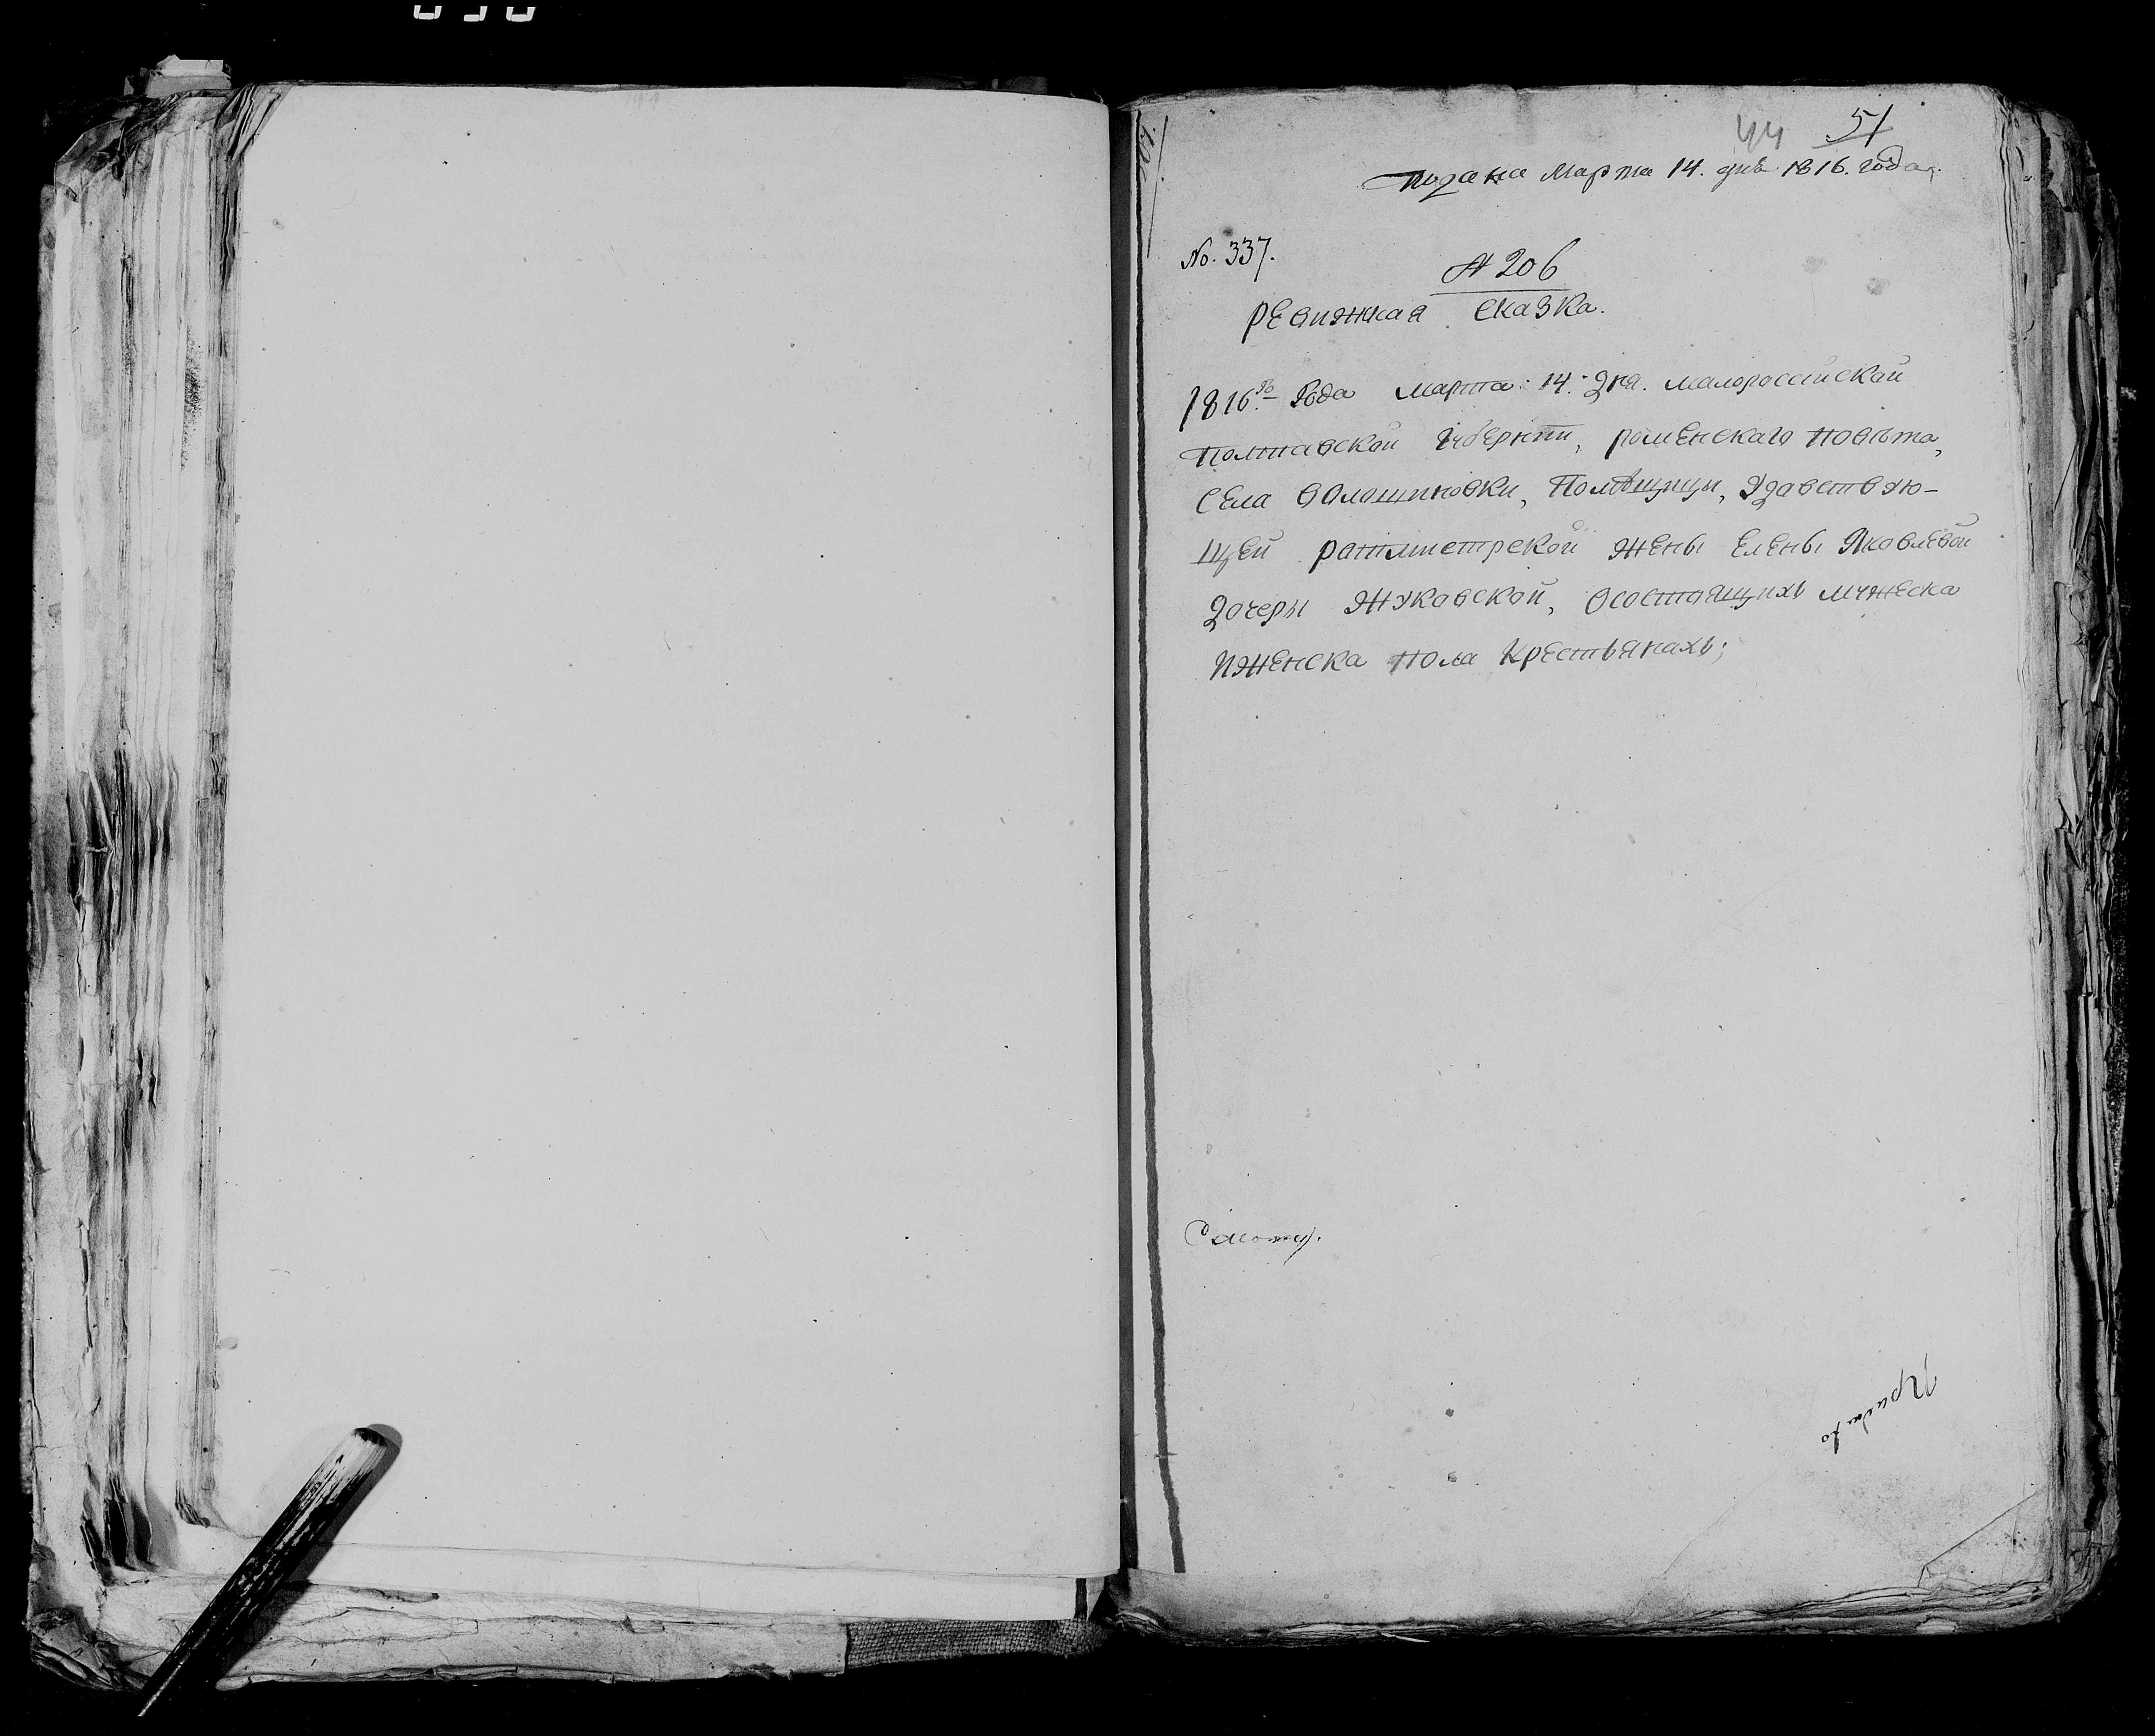 44 51
Подана Марта 14. дня 1816. года.
No. 337.
№ 206
Ревижская сказка.
1816.го Года марта: 14. Дня. малороссийской
Полтавской Губернии, роменскаго повѣта,
Села волошиновки, Помѣщицы, Здавствую-
щей ратмистрской жены Елены Яковлевой
Дочеры Жуковской, Осостоящихъ мужеска
Иженска пола Крестьянахъ;